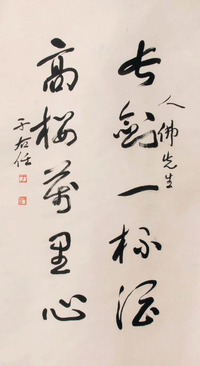 人佛先生
長劍一杯酒
高樓萬里心
于右任